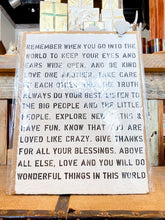 REMEMBER WHEN YOU GO INTO THE
WORLD TO KEEP YOUR EYES AND
EARS WIDE OPEN. AND BE KIND
LOVE ONE ANOTHER. TAKE CARE
OF EACH OTHER. TELL THE TRUTH
ALWAYS DO YOUR BEST. LISTEN TO
THE BIG PEOPLE AND THE LITTLE
PEOPLE. EXPLORE NEW THINGS &
HAVE FUN. KNOW THAT YOU ARE
LOVED LIKE CRAZY. GIVE THANKS
FOR ALL YOUR BLESSINGS. ABOVE
ALL ELSE, LOVE AND YOU WILL DO
WONDERFUL THINGS IN THIS WORLD